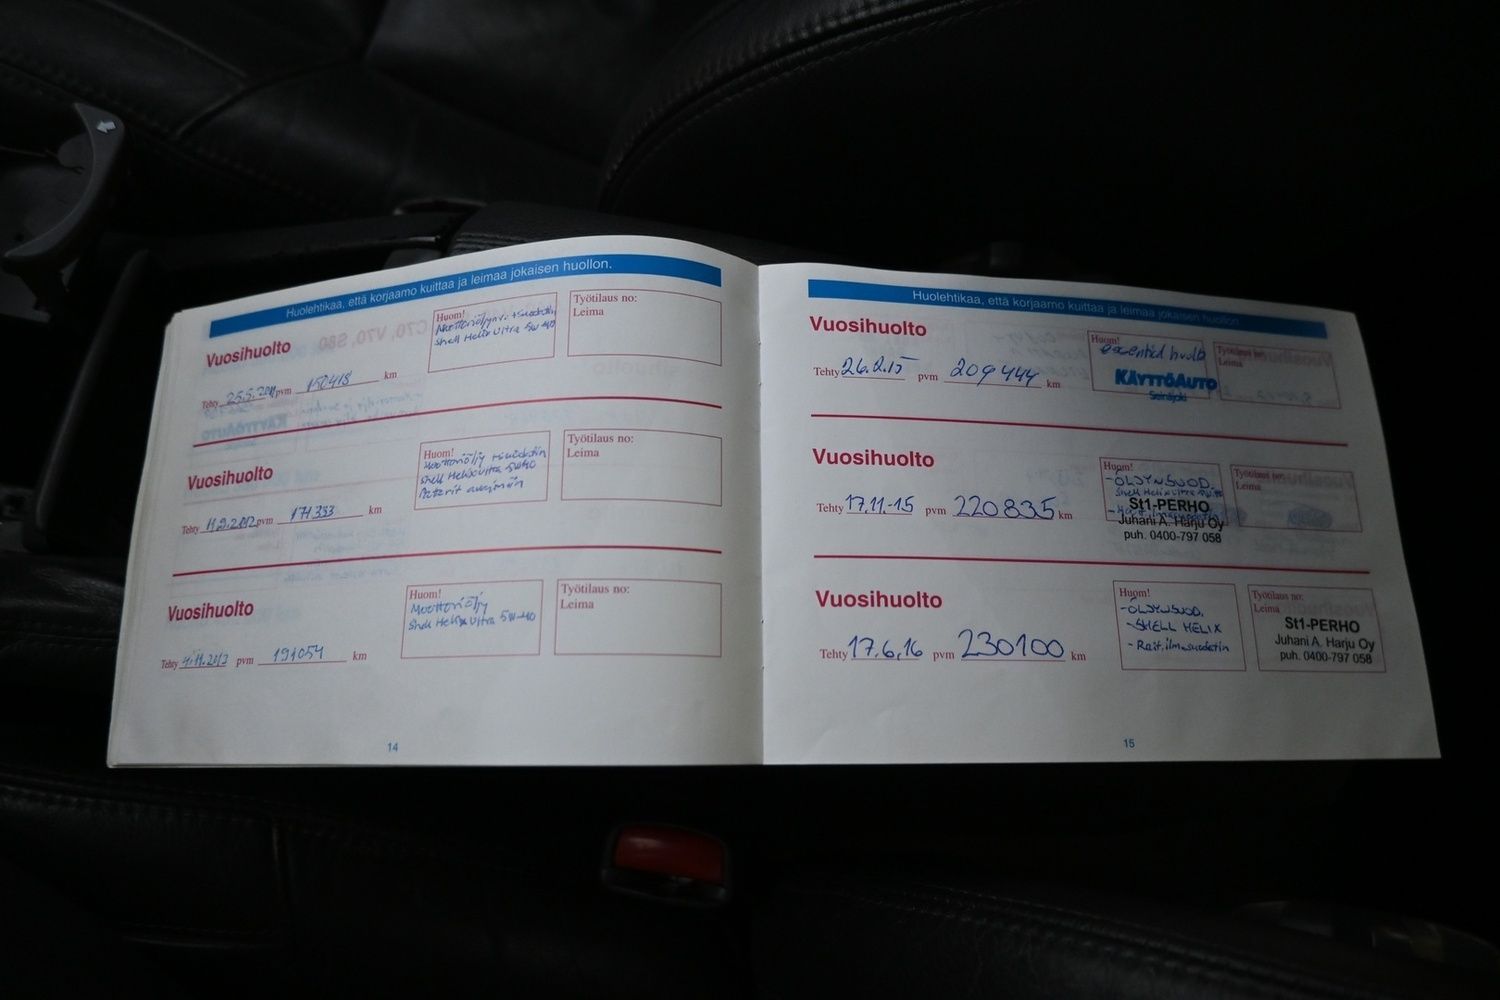 Huolehtikaa, että korjaamo kuittaa ja leimaa jokaisen huollon.
Vuosihuolto
Tehty 25.5. pvm 150418 km
Huom!
Shell Helix Ultra 5W-40
Työtilaus no:
Leima
C70, V70, S80
Vuosihuolto
Tehty pvm 171333 km
Huom!
Moottoriöljy
Shell Helix Ultra 5W40
Työtilaus no:
Leima
Vuosihuolto
Tehty 4.11.2013 pvm 191054 km
Huom!
Moottoriöljy
Shell Helix Ultra 5W-40
Työtilaus no:
Leima
14
Huolehtikaa, että korjaamo kuittaa ja leimaa jokaisen huollon.
Vuosihuolto
Tehty 26.2.15 pvm 209444 km
Huom!
KÄYTTÖAUTO
Seinäjoki
Työtilaus no:
Leima
Vuosihuolto
Tehty 17.11-15 pvm 220835 km
Huom!
- ÖLJYNSUOD.
Shell Helix Ultra
St1-PERHO
Juhani A. Harju Oy
puh. 0400-797 058
Työtilaus no:
Leima
Vuosihuolto
Tehty 17.6.16 pvm 230100 km
Huom!
- ÖLJYNSUOD.
- SHELL HELIX
- Rait.ilmasuodatin
Työtilaus no:
Leima
St1-PERHO
Juhani A. Harju Oy
puh. 0400-797 058
15